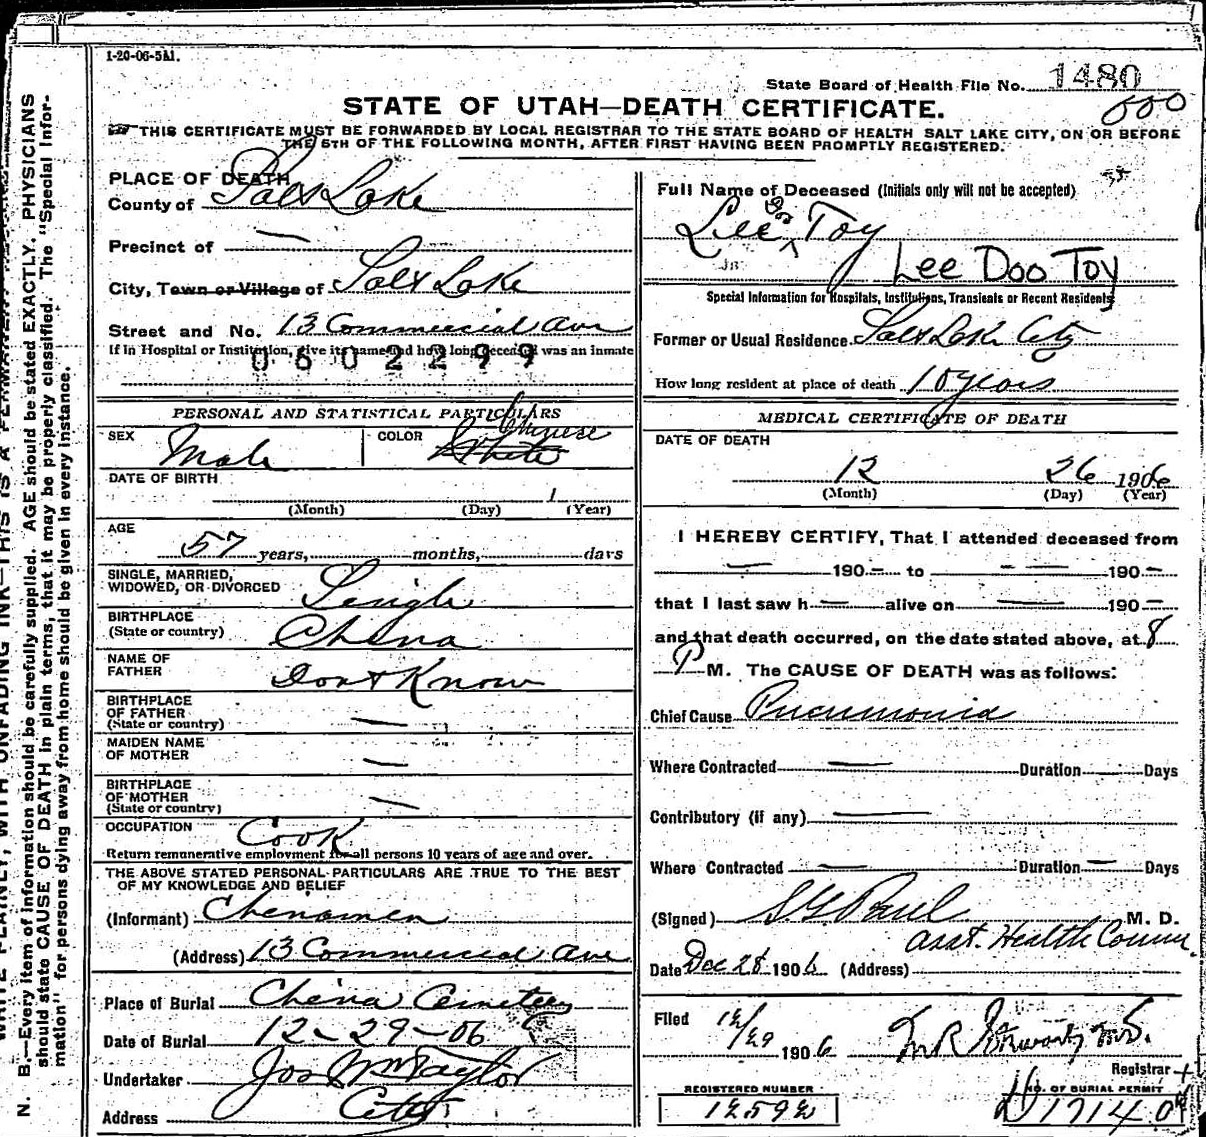 1-20-06-5M.
State Board of Health File No. 1480
STATE OF UTAH—DEATH CERTIFICATE.
THIS CERTIFICATE MUST BE FORWARDED BY LOCAL REGISTRAR TO THE STATE BOARD OF HEALTH SALT LAKE CITY, ON OR BEFORE
THE 5TH OF THE FOLLOWING MONTH, AFTER FIRST HAVING BEEN PROMPTLY REGISTERED.
PLACE OF DEATH
County of Salt Lake
Precinct of —
City, Town or Village of Salt Lake
Street and No. 13 Commercial Ave
If in Hospital or Institution, give its name and how long deceased was an inmate
0602299
PERSONAL AND STATISTICAL PARTICULARS
SEX Male COLOR White Chinese
DATE OF BIRTH
(Month) (Day) (Year)
AGE
57 years, months, days
SINGLE, MARRIED,
WIDOWED, OR DIVORCED Single
BIRTHPLACE
(State or country) China
NAME OF
FATHER Dont Know
BIRTHPLACE
OF FATHER
(State or country) —
MAIDEN NAME
OF MOTHER —
BIRTHPLACE
OF MOTHER
(State or country) —
OCCUPATION Cook
Return remunerative employment for all persons 10 years of age and over.
THE ABOVE STATED PERSONAL PARTICULARS ARE TRUE TO THE BEST
OF MY KNOWLEDGE AND BELIEF
(Informant) Chinamen
(Address) 13 Commercial Ave
Place of Burial China Cemetery
Date of Burial 12-29-06
Undertaker Jos Wm Taylor
Address City
Full Name of Deceased (Initials only will not be accepted)
Lee Toy
Lee Doo Toy
Special Information for Hospitals, Institutions, Transients or Recent Residents
Former or Usual Residence Salt Lake City
How long resident at place of death 18 years
MEDICAL CERTIFICATE OF DEATH
DATE OF DEATH
12 26 1906
(Month) (Day) (Year)
I HEREBY CERTIFY, That I attended deceased from
— 190— to — 190—
that I last saw h— alive on — 190—
and that death occurred, on the date stated above, at 8
P M. The CAUSE OF DEATH was as follows:
Chief Cause Pneumonia
Where Contracted — Duration — Days
Contributory (if any) —
Where Contracted — Duration — Days
(Signed) S G Paul M. D.
asst. Health Comm
Date Dec 28 1906 (Address)
Filed 12/29 1906
Registrar
REGISTERED NUMBER
NO. OF BURIAL PERMIT
N. B.—Every item of information should be carefully supplied. AGE should be stated EXACTLY. PHYSICIANS
should state CAUSE OF DEATH in plain terms, that it may be properly classified. The "Special Infor-
mation" for persons dying away from home should be given in every instance.